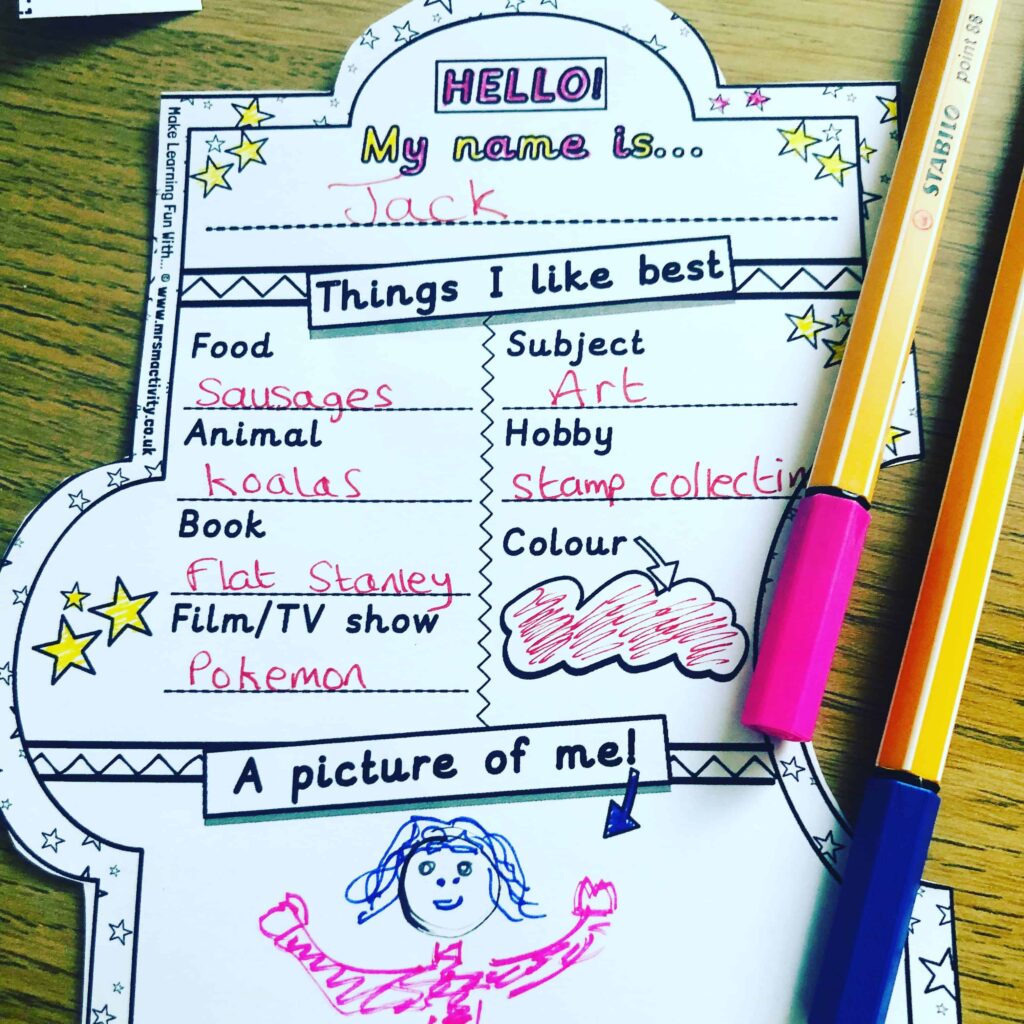 HELLO!
My name is...
Jack
Things I like best
Food
Sausages
Animal
koalas
Book
Flat Stanley
Film/TV show
Pokemon
Subject
Art
Hobby
stamp collectin
Colour
A picture of me!
Make Learning Fun With... © www.mrsmactivity.co.uk
STABILO point 88